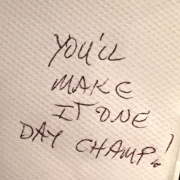 YOU'LL
MAKE
IT ONE
DAY CHAMP!